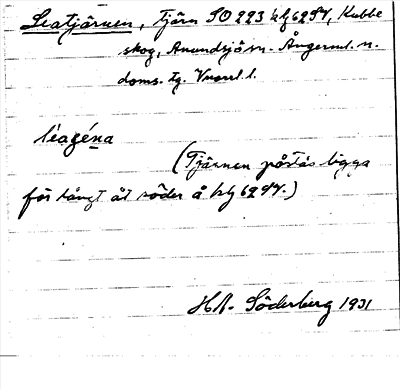 Leatjärnen, Tjärn SO 223 klj 62 SV, Kubbe
skog, Anundsjö sn. Ångerml. n.
doms. tg. Vnorrl. l.
léagéna
(Tjärnen påstås ligga
för långt åt söder å klj 62 SV.)
H A. Söderberg 1931